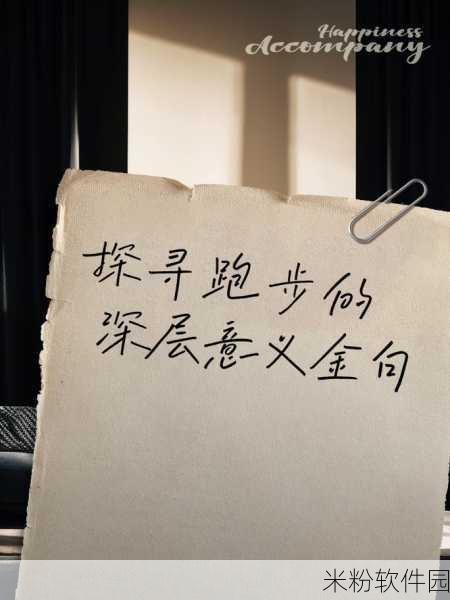 Happiness
Accompany
探寻跑步的
深层意义金句
米粉软件园